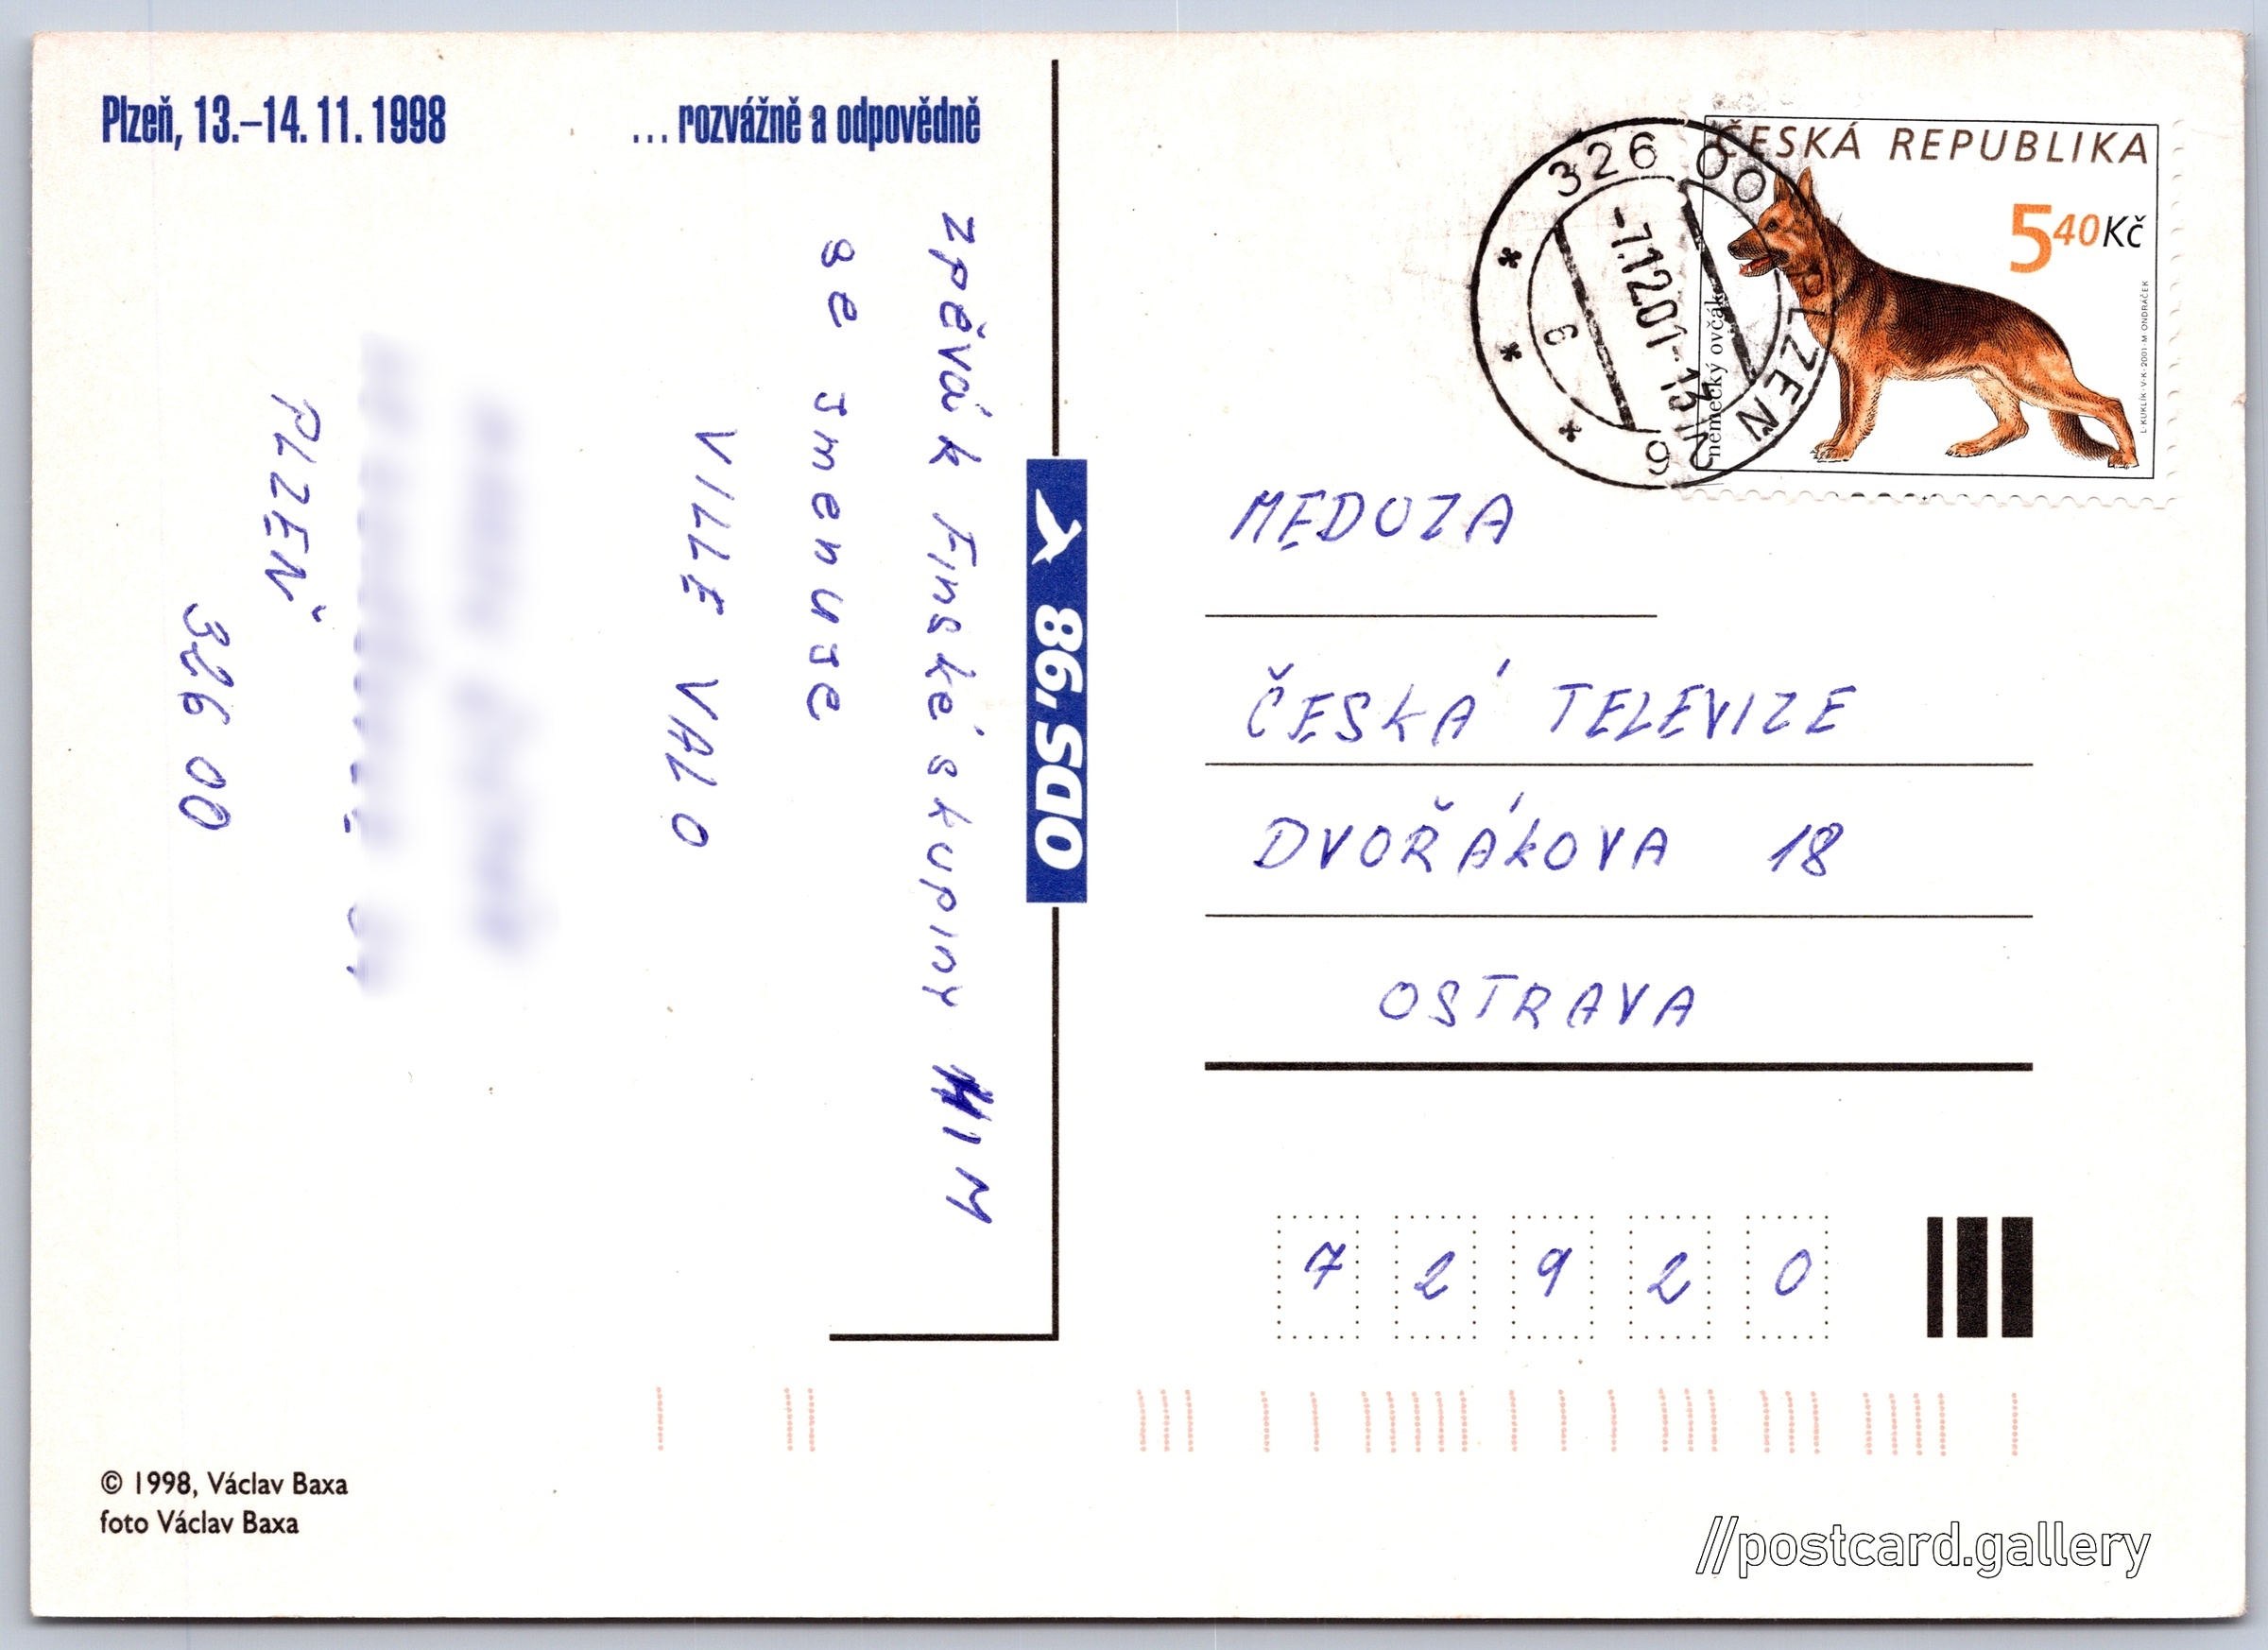 Plzeň, 13.–14. 11. 1998
... rozvážně a odpovědně
Zpěvák Finské skupiny HIM
se jmenuje
VILLE VALO
PLZEŇ
326 00
ODS'98
ČESKÁ REPUBLIKA
5 40 Kč
německý ovčák
L·KUKLÍK·V·K·2001·M·ONDRÁČEK
326 00 PLZEŇ
-7.12.01-19
6
MEDUZA
ČESKÁ TELEVIZE
DVOŘÁKOVA 18
OSTRAVA
7 2 9 2 0
© 1998, Václav Baxa
foto Václav Baxa
//postcard.gallery